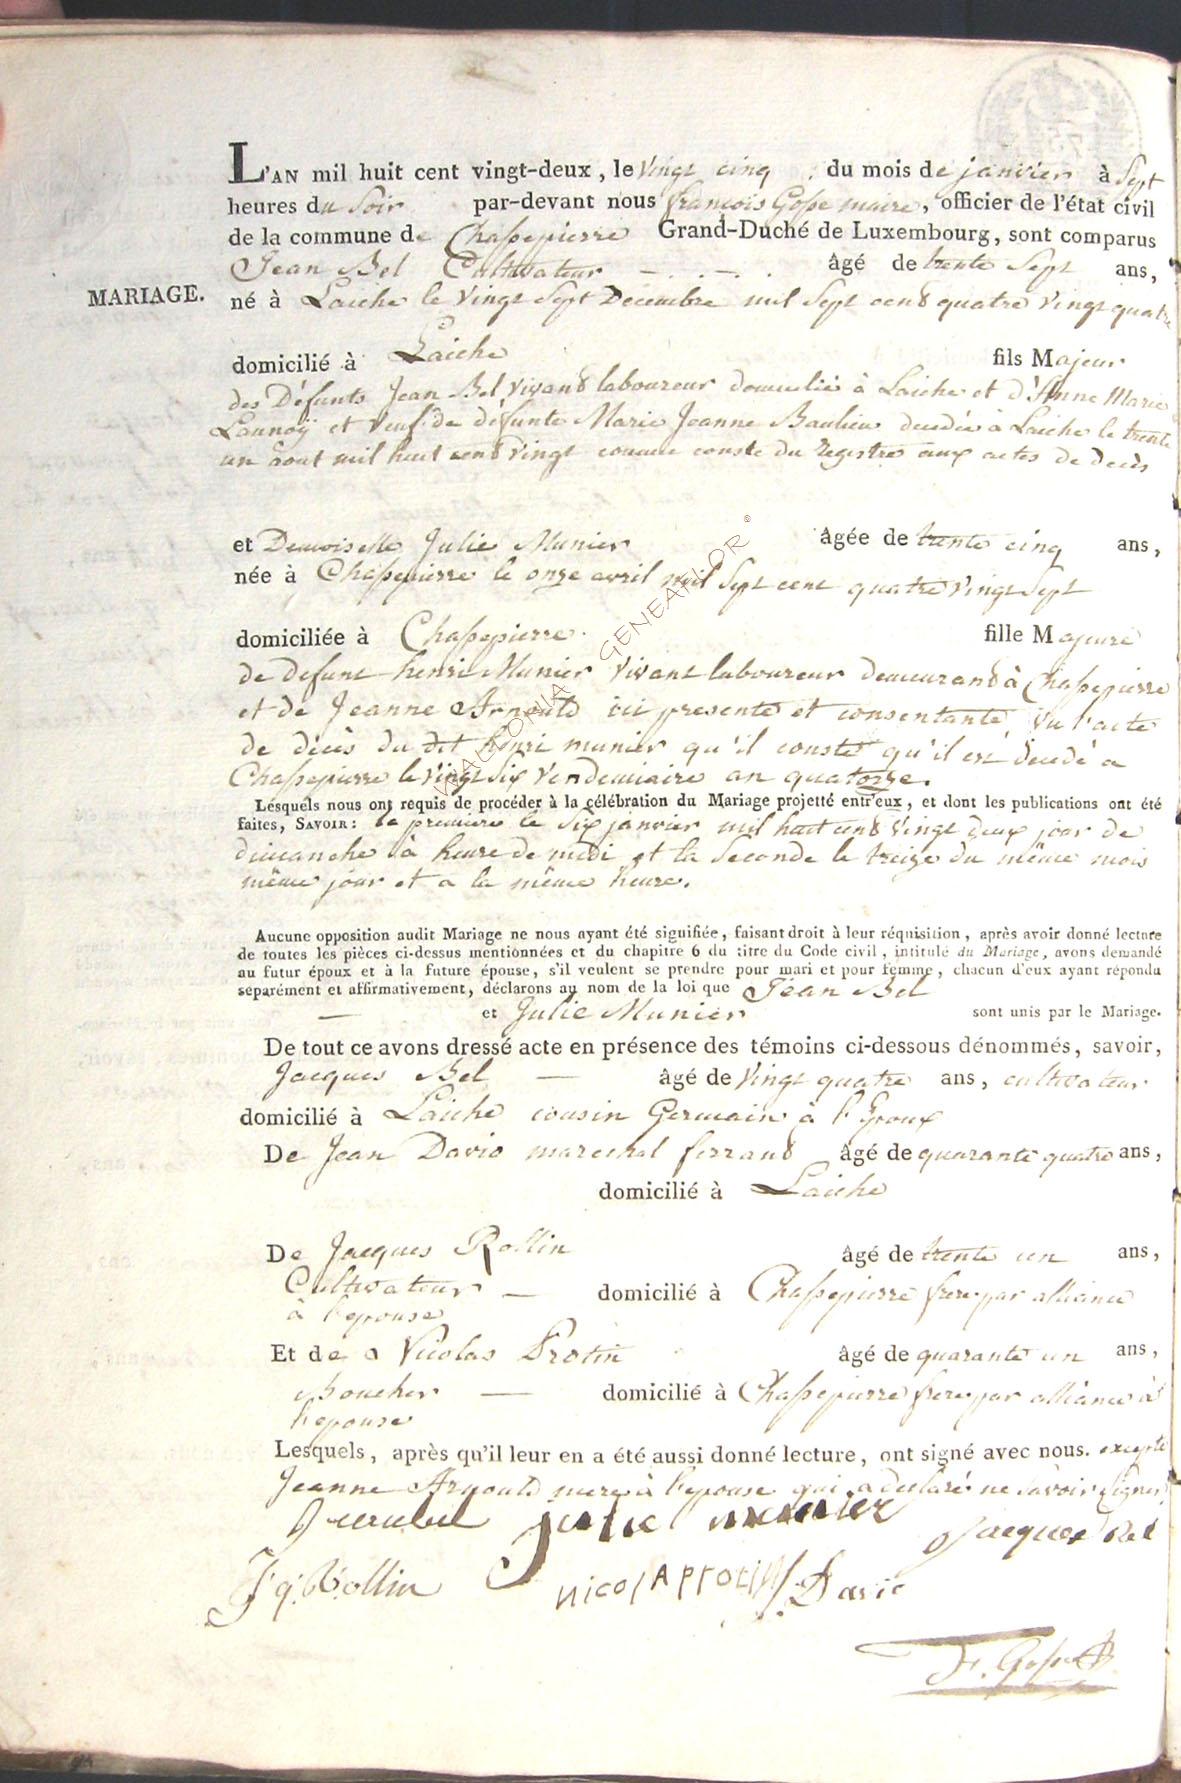 L'AN mil huit cent vingt-deux, le Vingt cinq du mois de janvier à Sept
heures du Soir par-devant nous françois Gosse maire, officier de l'état civil
de la commune de Chassepierre Grand-Duché de Luxembourg, sont comparus
Jean Bel Cultivateur âgé de trente Sept ans,
MARIAGE.
né à Laiche le Vingt Sept Decembre mil Sept cent quatre Vingt quatre
domicilié à Laiche fils Majeur
des Défunts Jean Bel Vivant laboureur domicilié à Laiche et d'Anne Marie
Launoÿ et Veuf de défunte Marie Jeanne Baulieu decedée à Laiche le trente
un aout mil huit cent Vingt comme conste du Registre aux actes de Decès
et Demoiselle Julie Munier âgée de trente cinq ans,
née à Chassepierre le onze avril mil Sept cent quatre Vingt Sept
domiciliée à Chassepierre fille Majeure
de defunt henri Munier Vivant laboureur demeurant à Chassepierre
et de Jeanne Arnould ici presente et consentante, vu l'acte
de décès du dit henri munier qu'il conste qu'il est décedé a
Chassepierre le Vingt Six Vendemiaire an quatorze.
Lesquels nous ont requis de procéder à la célébration du Mariage projetté entr'eux, et dont les publications ont été
faites, SAVOIR: la premiere le Six janvier mil huit cent Vingt deux jour de
dimanche à heure de midi et la Seconde le treize du même mois
même jour et a la même heure.
Aucune opposition audit Mariage ne nous ayant été signifiée, faisant droit à leur réquisition, après avoir donné lecture
de toutes les pièces ci-dessus mentionnées et du chapitre 6 du titre du Code civil, intitulé du Mariage, avons demandé
au futur époux et à la future épouse, s'il veulent se prendre pour mari et pour femme, chacun d'eux ayant répondu
séparément et affirmativement, déclarons au nom de la loi que Jean Bel
et Julie Munier sont unis par le Mariage.
De tout ce avons dressé acte en présence des témoins ci-dessous dénommés, savoir,
Jacques Bel âgé de Vingt quatre ans, cultivateur
domicilié à Laiche cousin Germain à l'Epoux
De Jean David marechal ferrant âgé de quarante quatre ans,
domicilié à Laiche
De Jacques Rollin âgé de trente un ans,
Cultivateur domicilié à Chassepierre frere par alliance
à l'epouse
Et de Nicolas Protin âgé de quarante un ans,
Boucher domicilié à Chassepierre frere par alliance à
l'epouse
Lesquels, après qu'il leur en a été aussi donné lecture, ont signé avec nous. excepté
Jeanne Arnould mere à l'epouse qui a declaré ne Savoir Signer
Jean bel julie munier Jacques Bel
Jq. Rollin NicolA Protin J. David
F. Gosse
© WALLONIA GENEAFLOR